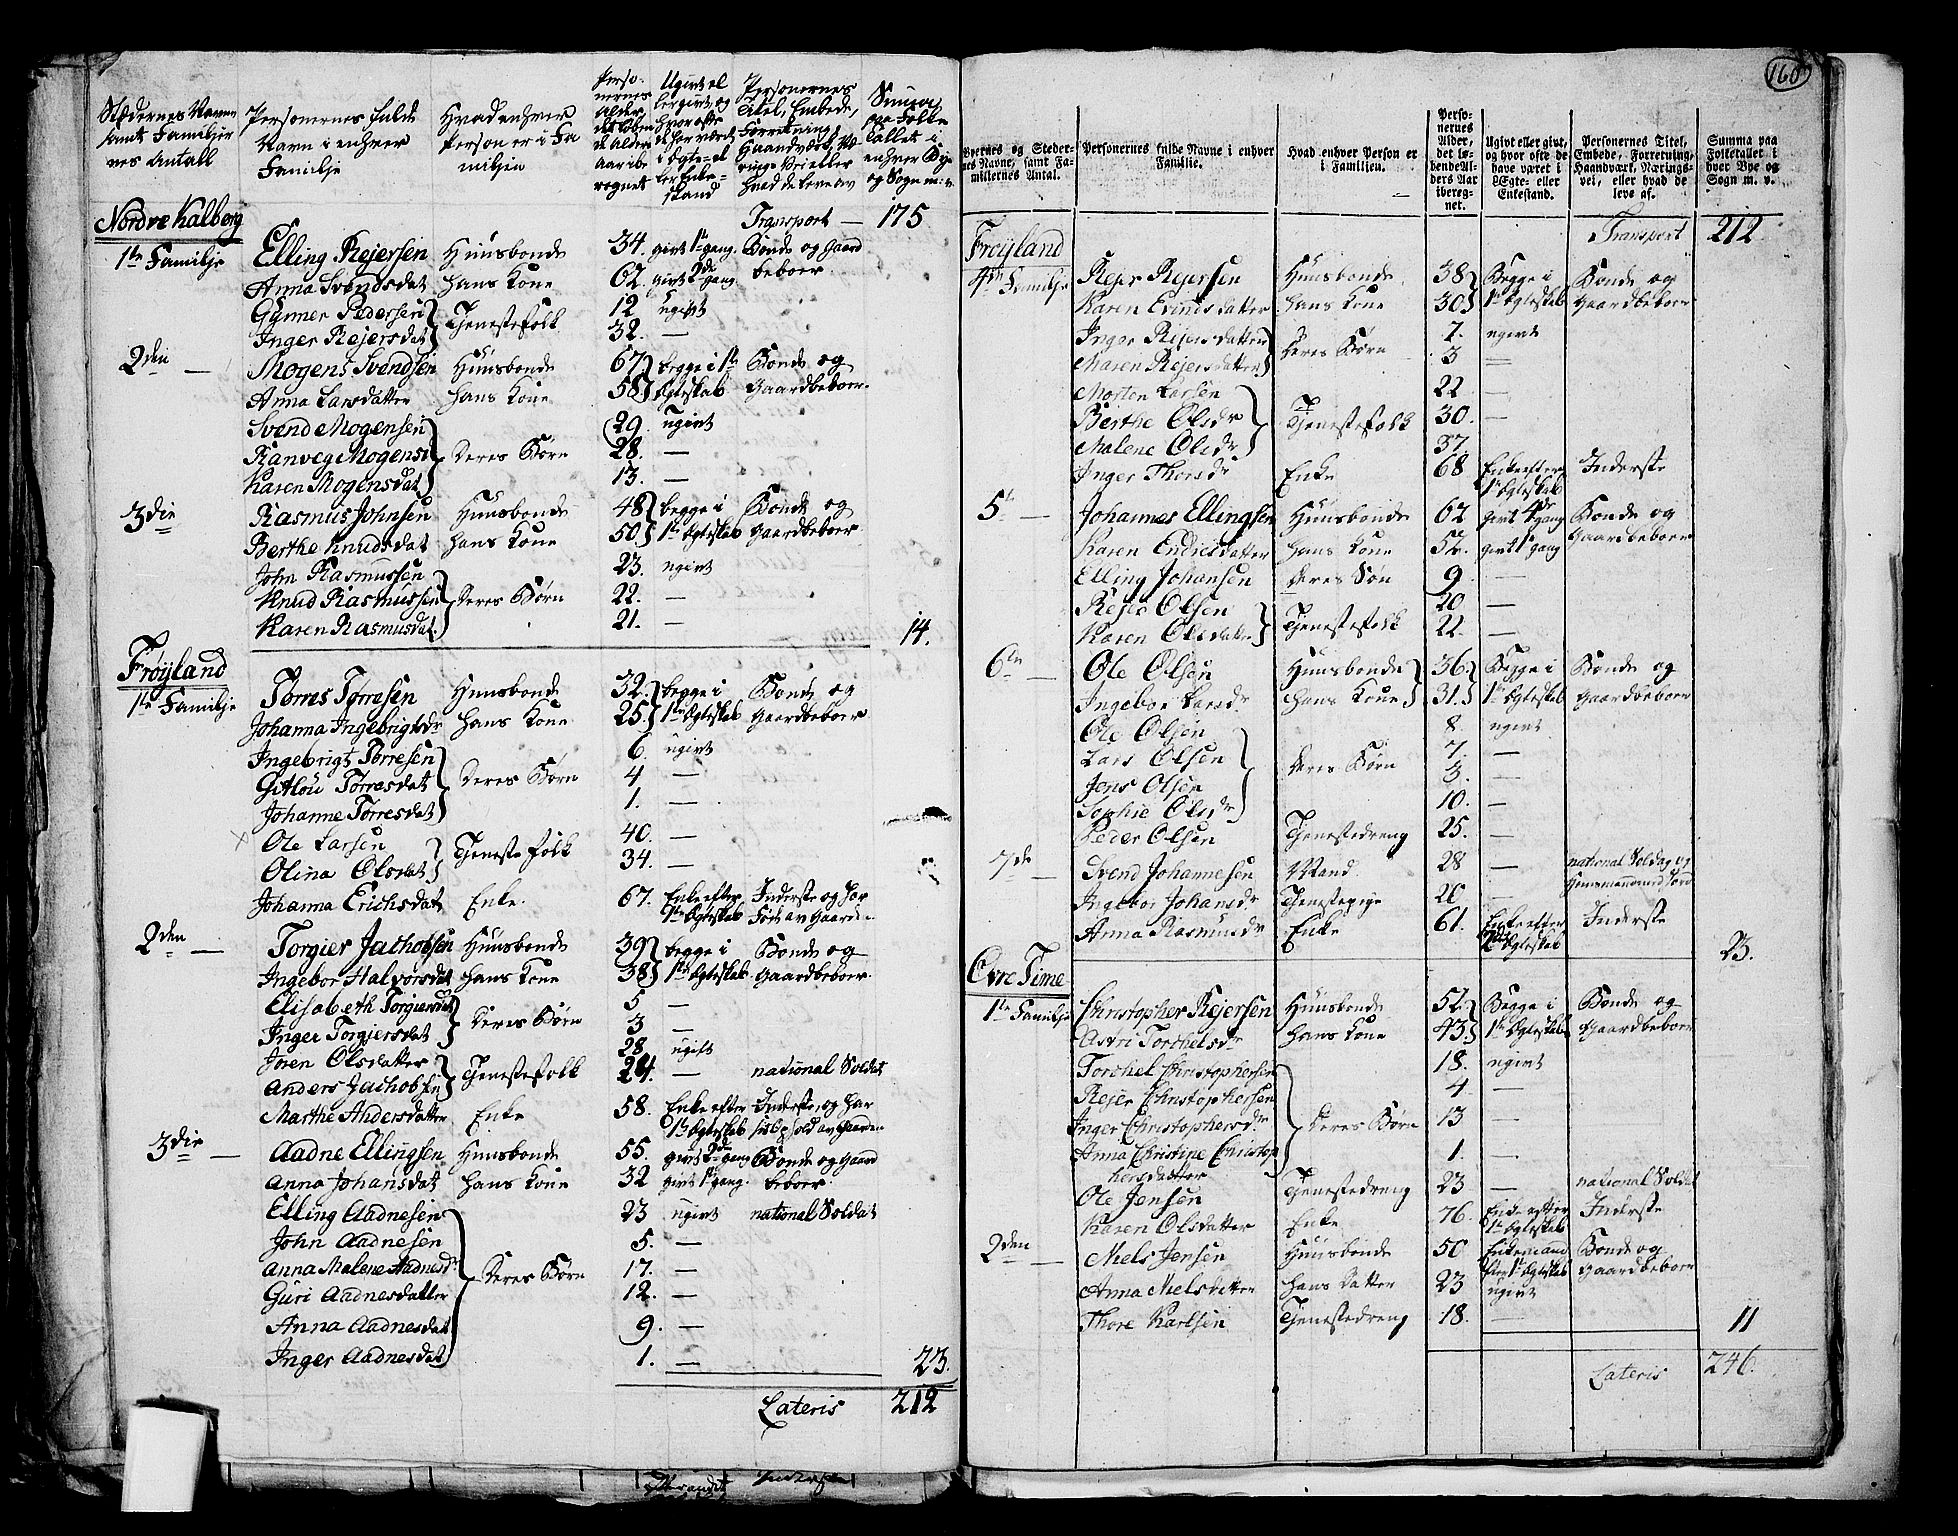 160
Nordre Kalberg Transport — 175
1te Familje Elling Rejersen Huusbonde 34. givt 1te gang. Bonde og Gaard
Anna Svendsdat hans Kone 62. givt 2de gang beboer.
Gunner Pedersen Tjenestefolk 12 ugivt
Inger Rejersdat 32. —
2den — Mogens Svendsen Huusbonde 67 begge i 1te Bonde og
Anna Larsdatter hans Kone 58 Egteskab Gaardbeboer.
Svend Mogensen 29. ugivt
Ranveg Mogensd Deres Børn 28. —
Karen Mogensdat 13. —
3die Rasmus Johnsen Huusbonde 48 begge i Bonde og
Berthe Knudsdat hans Kone 50 1te Egteskab Gaardbeboer
John Rasmussen 23. ugivt
Knud Rasmussen Deres Børn 22. —
Karen Rasmusdat 21. — 14.
Frøyland
1te Familje Tørres Tørresen Huusbonde 32. begge i Bonde og
Johanna Ingebrigtsdr hans Kone 25. 1te Egteskab Gaardbeboer
Ingebrigt Tørresen 6. ugivt
Gitlou Tørresdat Deres Børn 4 —
Johanne Tørresdat 1. —
Ole Larsen Tjeneste folk 40. —
Olina Olsdat 34. —
Johanna Erichsdat Enke. 67. Enke efter Inderste og har
1te Egteskab Føde av Gaarden
2den — Torgier Jachobsen Huusbonde 39 begge i Bonde og
Ingebor Halvorsdat hans Kone 38 1te Egteskab Gaardbeboer.
Elisabeth Torgiersdat Deres Børn 5 —
Inger Torgiersdat 3 —
Joren Olsdatter Tjenestefolk 28 ugift
Anders Jachobsen 24. — national Soldat
Marthe Andersdatter Enke 58. Enke efter Inderste, og har
1te Egteskab sit Ophold av Gaarden
3die — Aadne Ellingsen Huusbonde 55. givt 2de gang Bonde og Gaard
Anna Johansdat hans Kone 32 givt 1te gang. beboer.
Elling Aadnesen 23 ugivt national Soldat
John Aadnesen 5. —
Anna Malene Aadnesdr Deres Børn 17. —
Guri Aadnesdatter 12. —
Anna Aadnesdat 9. —
Inger Aadnesdat 1. — 23.
Lateris 212
Byernes og Stedernes Navne, samt Familiernes Antal.
Personernes fulde Navne i enhver Familie.
Hvad enhver Person er i Familien.
Personernes Alder, det løbende Alders Aar iberegnet.
Ugivt eller givt, og hvor ofte de have været i Ægte- eller Enkestand.
Personernes Titel, Embede, Forretning, Haandværk, Næringsvei, eller hvad de leve af.
Summa paa Folketallet i hver Bye og Sogn m. v.
Transport 212
Frøyland
4de Familje Rejer Rejersen Huusbonde 38 Begge i Bonde og
Karen Evindsdatter hans Kone 30 1te Egteskab Gaardbeboer
Inger Rejersdatter Deres Børn 7. ugivt
Maren Rejersdatter 3 —
Morten Larsen 22 —
Berthe Olsdr Tjenestefolk 30. —
Malene Olsdr 37.
Inger Thorsdr Enke 68 Enke efter 1te Egteskab Inderste
5te — Johannes Ellingsen Huusbonde 62 givt gang Bonde og
Karen Endresdatter hans Kone 52. givt 1te gang Gaardbeboer
Elling Johansen Deres Søn 9 —
Rejer Olsen Tjenestefolk 20 —
Karen Olsdatter 22. —
6te — Ole Olsen Huusbonde 36. Begge i Bonde og
Ingebor Larsdr hans Kone 31. 1te Egteskab Gaardbeboer
Ole Olsen 8. ugivt
Lars Olsen Deres Børn 7. —
Jens Olsen 3. —
Sophie Olsdr 10. —
Peder Olsen Tjenestedreng 25. —
7de — Svend Johannesen Mand 28 — national Soldat og
Ingebor Johansdr Tjenestepige 20 —
Anna Rasmusdr Enke 61. Enke efter Egteskab Inderste
23.
Øvre Time
1te Familje Christopher Rejersen Huusbonde 52. Begge i Bonde og
Astri Torchelsdr hans Kone 43 1te Egteskab Gaardbeboer
Torchel Christophersen 18. ugivt
Rejer Christophersen 4 —
Inger Christophersdr Deres Børn 13 —
Anna Christine Christop 1. —
hersdatter
Ole Jensen Tjenestedreng 23 — national Soldat
Karen Olsdatter Enke 76. Enke efter 1te Egteskab Inderste
2den — Niels Jensen Huusbonde 50 Enkemand Bonde og
efter 1te Egteskab Gaardbeboer
Anna Nielsdatter hans Datter 23 ugivt
Thore Karlsen Tjenestedreng 18. — 11
Lateris 246.